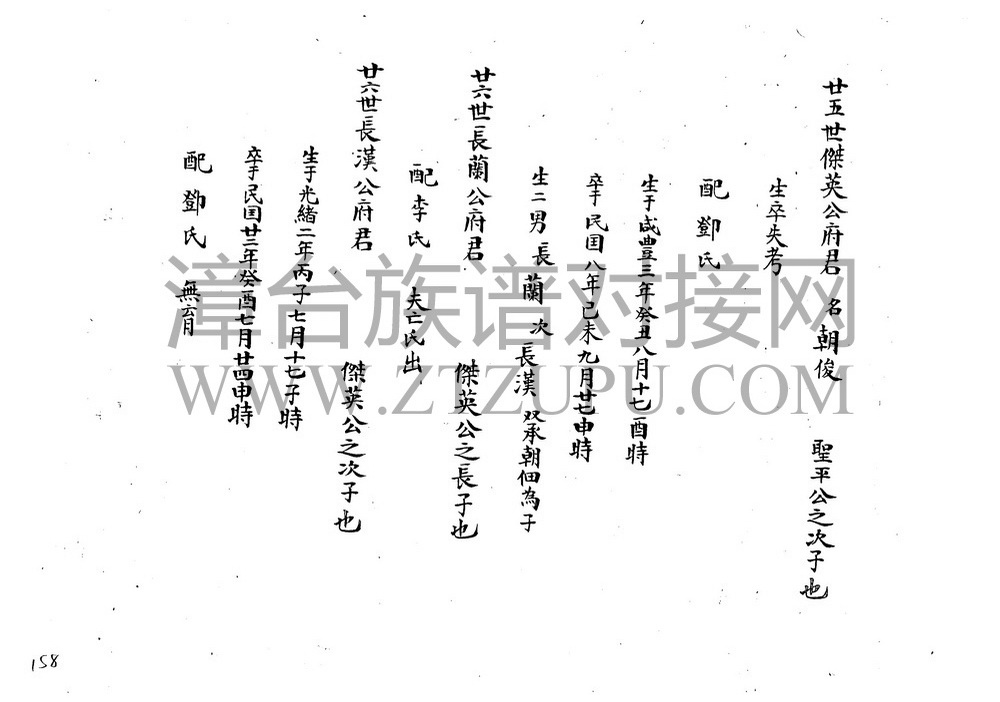 廿五世傑英公府君 名朝俊 聖平公之次子也
生卒失考
配鄧氏
生于咸豐三年癸丑八月十七酉時
卒于民国八年己未九月廿七申時
生二男 長蘭 次長漢 双承朝佃為子
廿六世長蘭公府君 傑英公之長子也
配李氏 夫亡氏出
廿六世長漢公府君 傑英公之次子也
生于光緒二年丙子七月十七子時
卒于民国廿三年癸酉七月廿四申時
配鄧氏 無育
漳台族谱对接网
WWW.ZTZUPU.COM
158